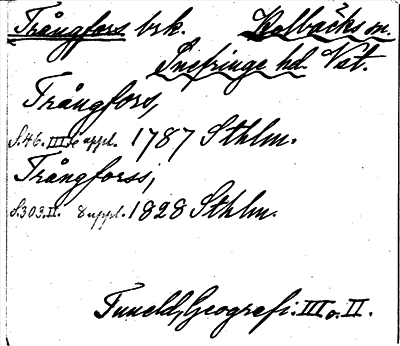 Trångfors brk. Kolbäcks sn.
Snefringe hd. Vst.
Trångfors,
S. 46. III. 6 uppl. 1787 Sthlm.
Trångforss;
S. 303. II. 8 uppl. 1828 Sthlm.
Tuneld, Geografi. III o. II.